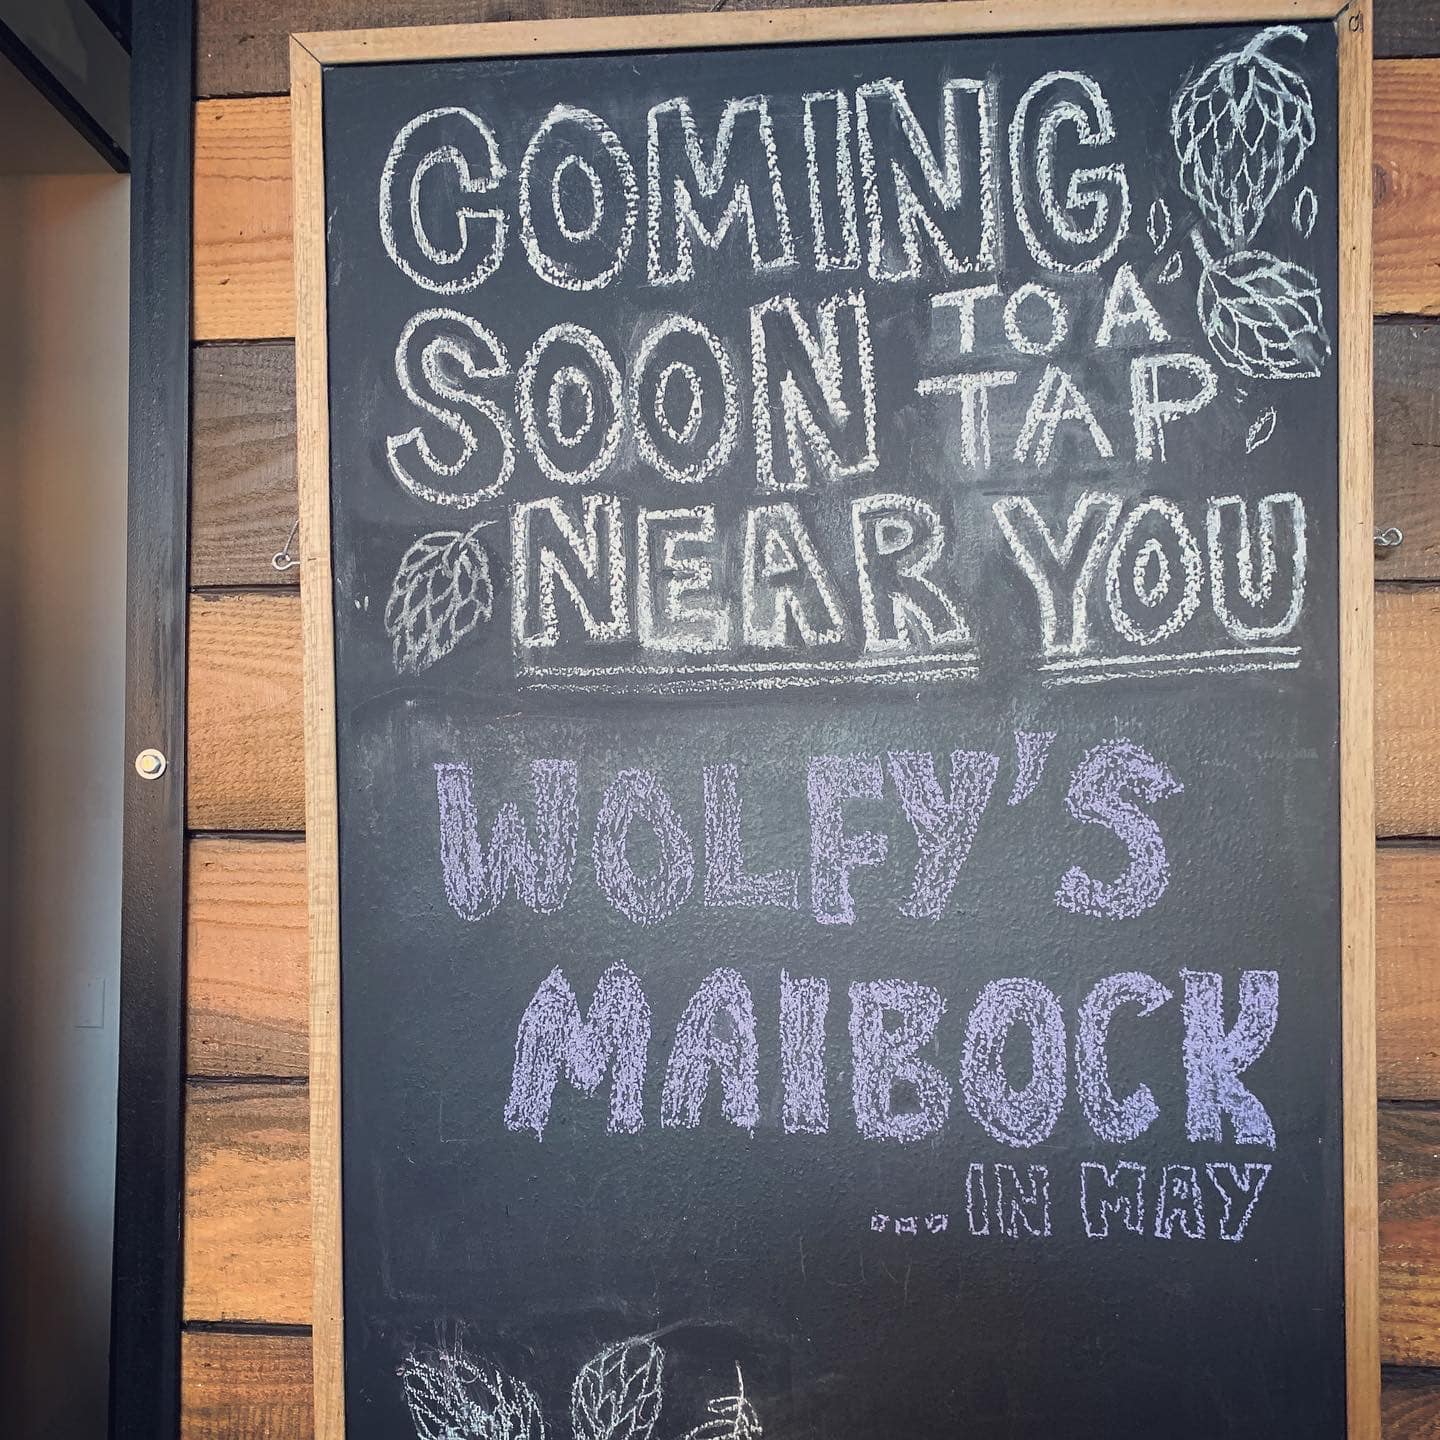 COMING
SOON TO A
TAP
NEAR YOU
WOLFY'S
MAIBOCK
...IN MAY